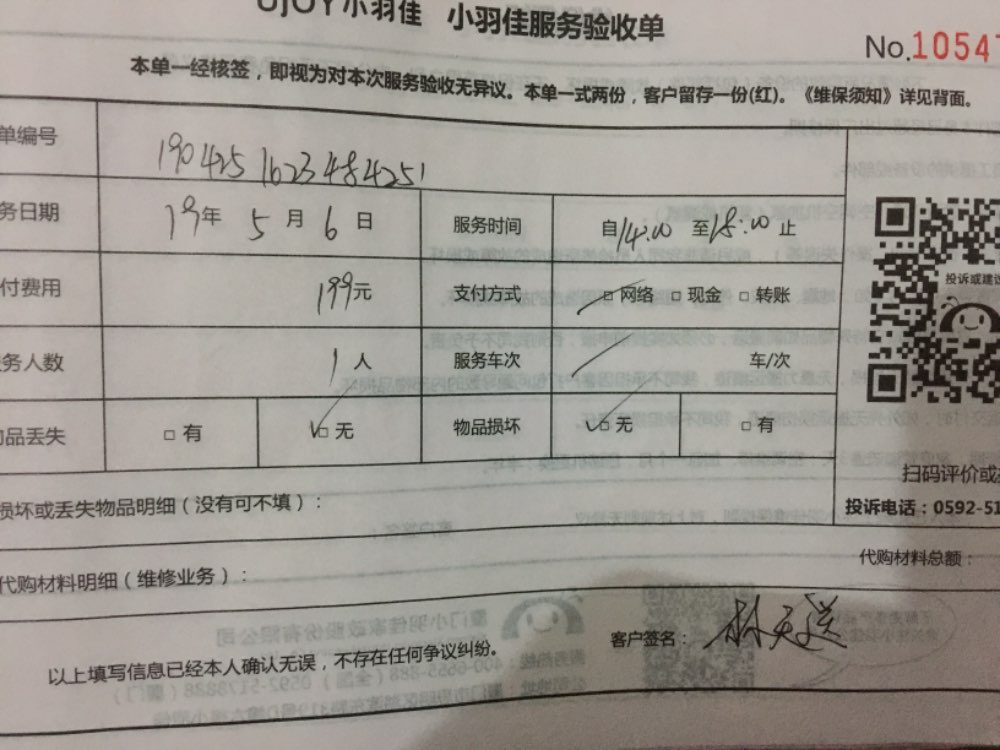 UJOY小羽佳 小羽佳服务验收单
No.10547
本单一经核签，即视为对本次服务验收无异议。本单一式两份，客户留存一份(红)。《维保须知》详见背面。
单编号 190425 1623484251
务日期 19年 5月 6日 服务时间 自14:00 至18:00 止
付费用 199元 支付方式 □网络 □现金 □转账
务人数 1人 服务车次 车/次
品丢失 □有 □无 物品损坏 □无 □有
投诉或建议
扫码评价或
投诉电话：0592-51
损坏或丢失物品明细（没有可不填）：
代购材料明细（维修业务）：
代购材料总额：
以上填写信息已经本人确认无误，不存在任何争议纠纷。
客户签名：林天送